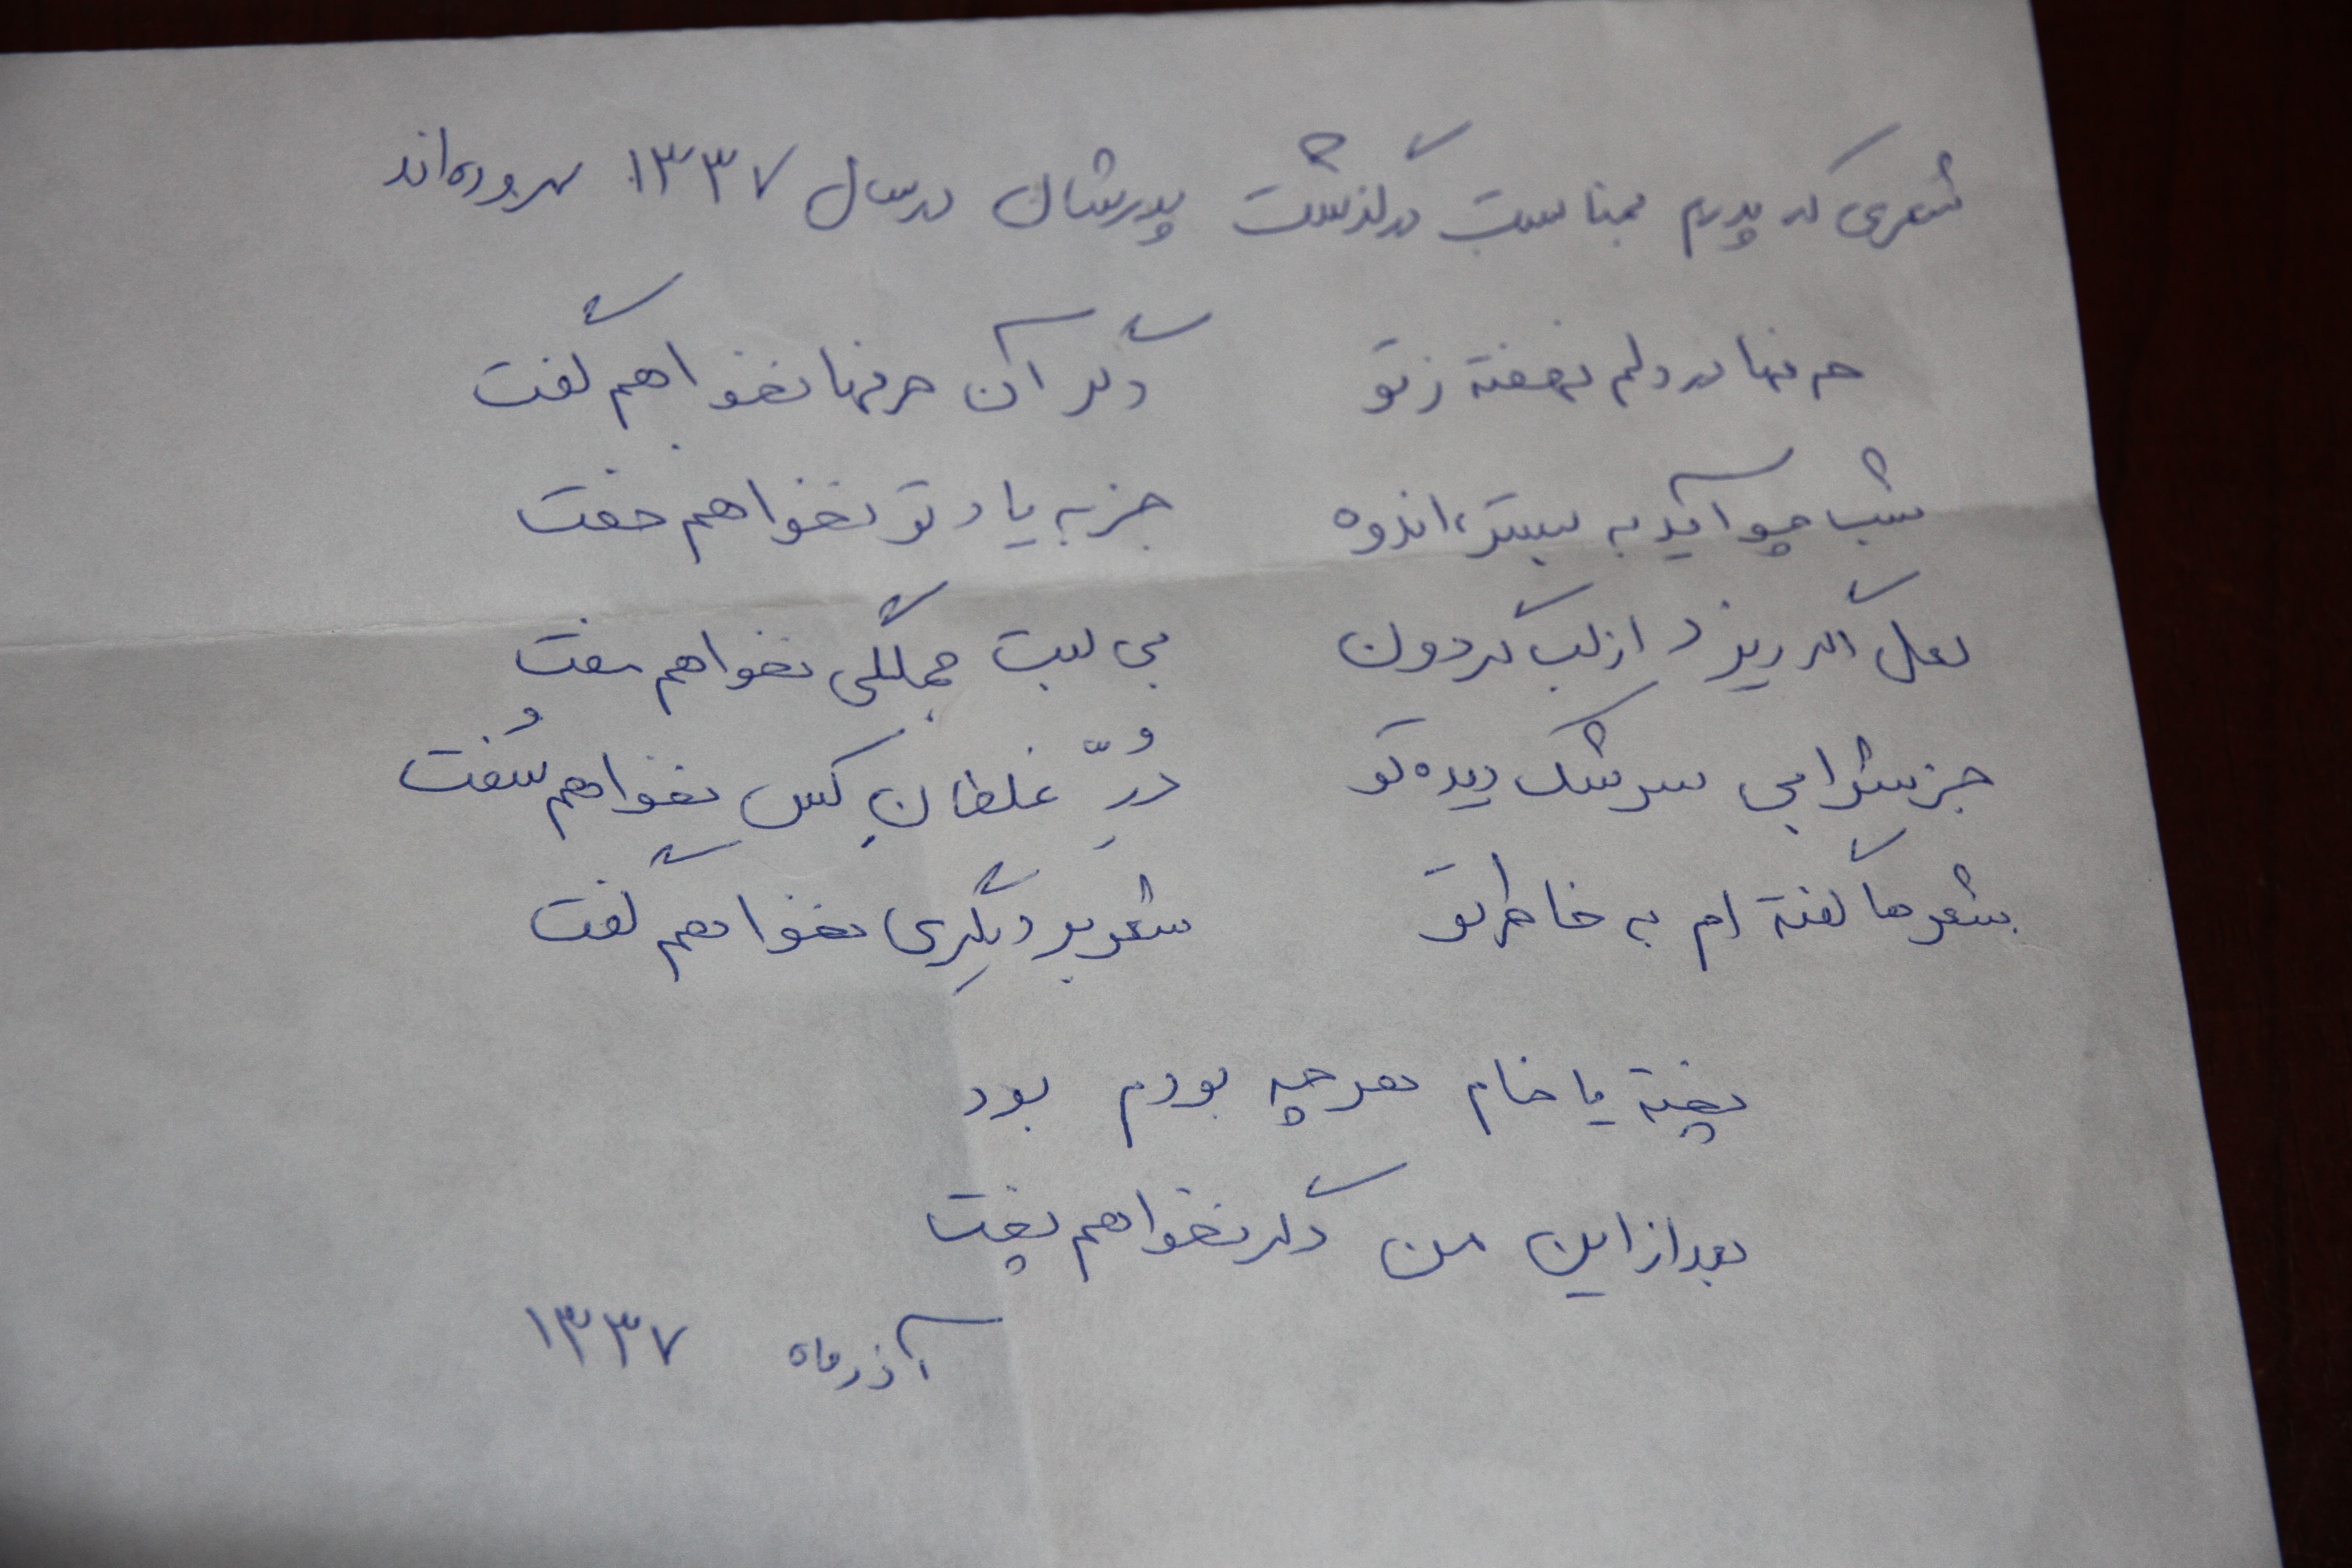 شعری که پدرم بمناسبت درگذشت پدرشان در سال ۱۳۳۷ سروده‌اند
حرفها در دلم نهفته ز تو دگر آن حرفها نخواهم گفت
شب چو آید به بستر، اندوه جز به یاد تو نخواهم خفت
لعل اگر ریزد از لب گردون بی لبت جملگی نخواهم مفت
جز شرابی سرشک دیده تو دُرِّ غلطانِ کس نخواهم سُفت
شعرها گفته ام به خاطر تو شعر بر دیگری نخواهم گفت
پخته یا خام هر چه بودم بود
بعد از این من دگر نخواهم پخت
آذرماه ۱۳۳۷